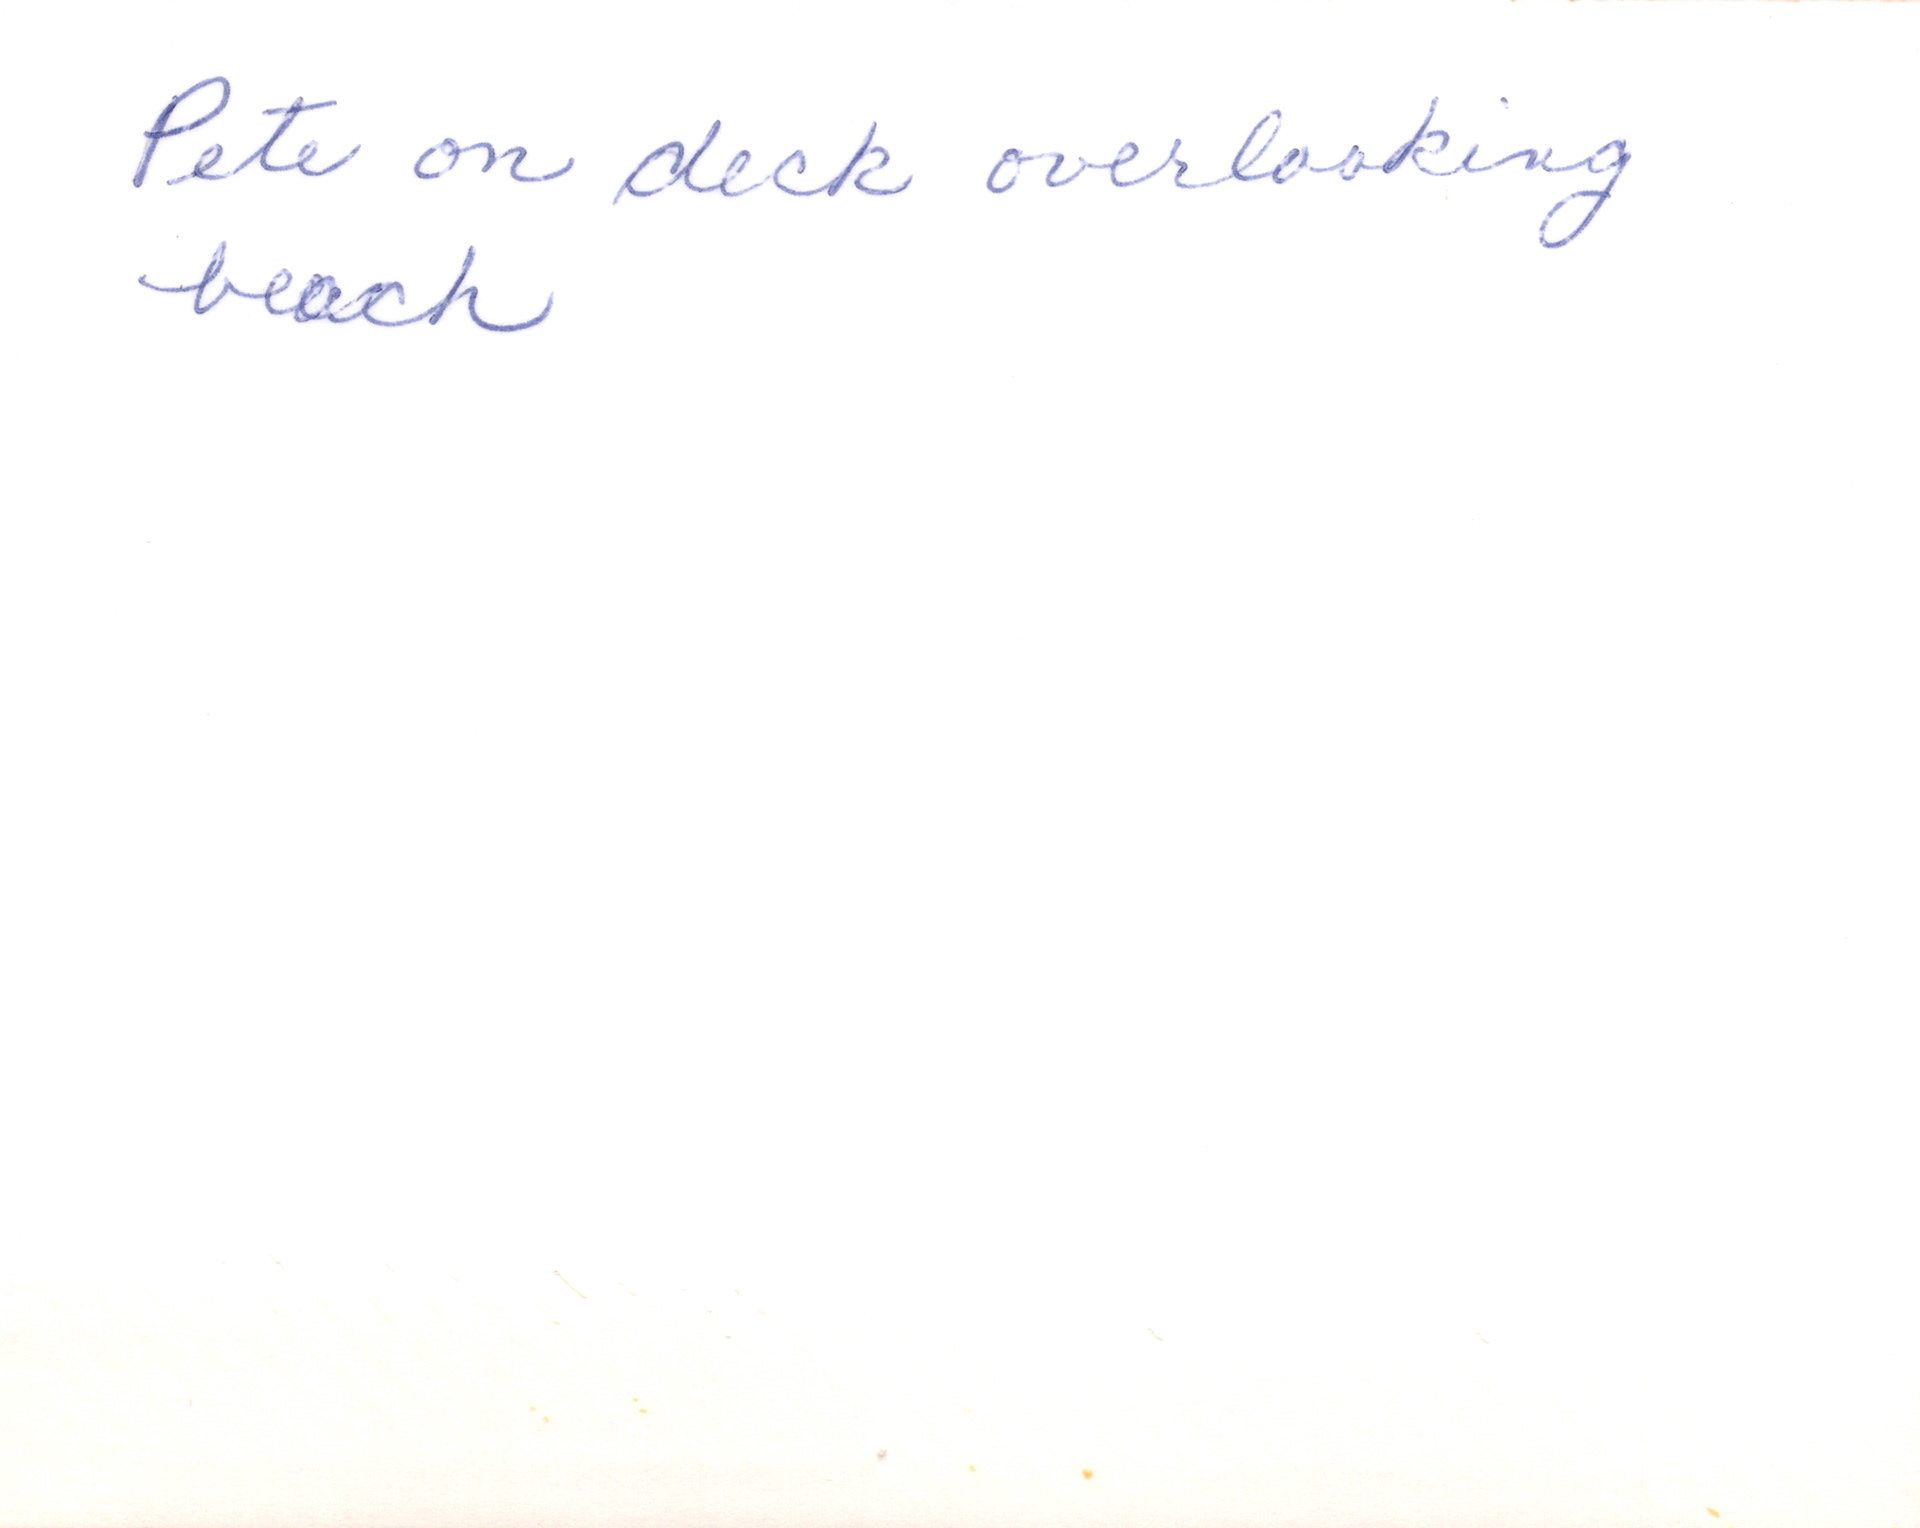 Pete on deck overlooking
beach